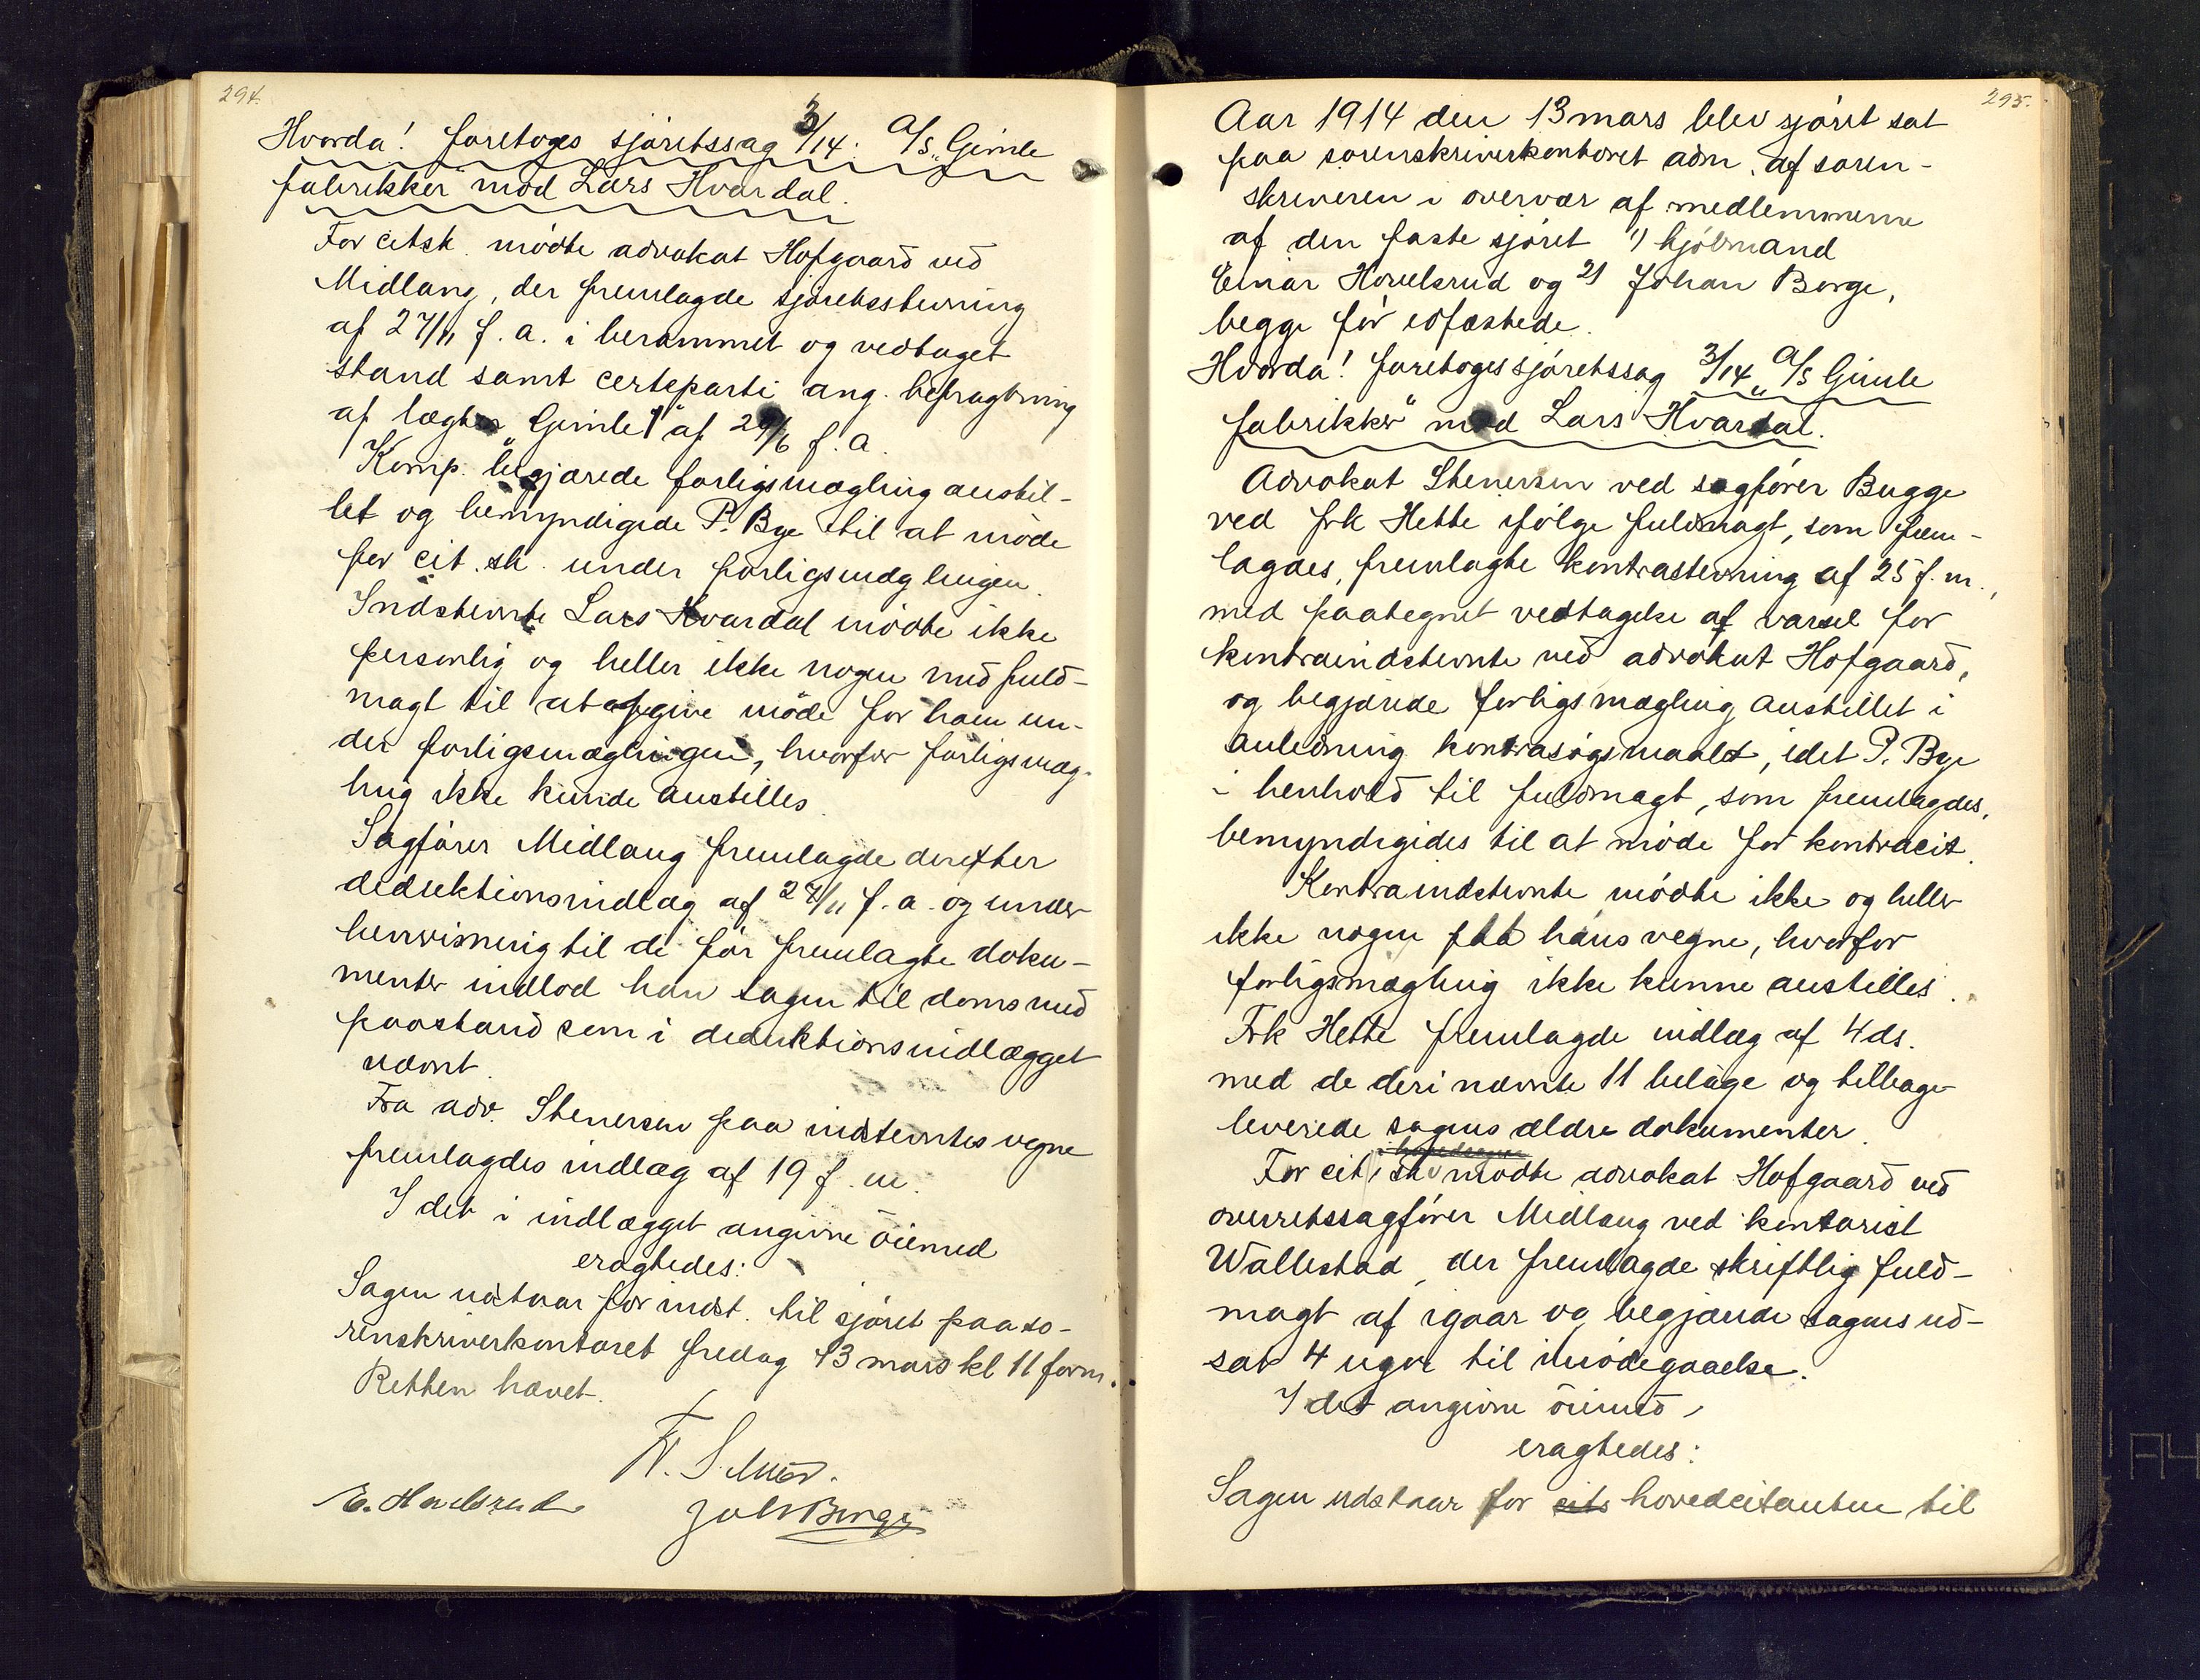 294.
Hvorda! foretoges sjøretssag 3/14. A/S „Gimle
fabrikker" mod Lars Hvardal.
For citsk. mødte advokat Hofgaard ved
Midlang, der fremlagde sjøretsstevning
af 27/11 f. a. i berammet og vedtaget
stand samt certeparti ang. befragtning
af lægter „Gimle 1" af 29/6 f. a.
Komp. begjærede forligsmægling anstil-
let og bemyndigede P. Bye til at møde
for cit. sk. under forligsmæglingen.
Indstevnte Lars Hvardal mødte ikke
personlig og heller ikke nogen med fuld-
magt til at afgive møde for ham un-
der forligsmæglingen, hvorfor forligsmæg-
ling ikke kunde anstilles.
Sagfører Midlang fremlagde derefter
deduktionsindlæg af 27/11 f. a. og under
henvisning til de før fremlagte doku-
menter indlod han sagen til doms med
paastand som i deduktionsindlægget
nævnt.
Fra adv. Stenersen paa indstevntes vegne
fremlagdes indlæg af 19 f. m.
I det i indlægget angivne øiemed
eragtedes:
Sagen udstaar for indst. til sjøret paa so-
renskriverkontoret fredag 13 mars kl 11 form.
Retten hævet.
E. Hovelsrud
Joh Borge
295.
Aar 1914 den 13 mars blev sjøret sat
paa sorenskriverkontoret adm. af soren-
skriveren i overvær af medlemmerne
af den faste sjøret 1) hjelmand
Einar Hovelsrud og 2) Johan Borge,
begge før edfæstede.
Hvorda! foretoges sjøretssag 3/14 „A/S Gimle
fabrikker" mod Lars Hvardal.
Advokat Stenersen ved sagfører Bugge
ved frk Hette ifølge fuldmagt, som frem-
lagdes, fremlagte kontrastevning af 25 f. m.,
med paategnet vedtagelse af varsel for
kontraindstevnte ved advokat Hofgaard,
og begjærede forligsmægling anstillet i
anledning kontrasøgsmaalet, idet P. Bye
i henhold til fuldmagt, som fremlagdes,
bemyndigedes til at møde for kontracit.
Kontraindstevnte mødte ikke og heller
ikke nogen paa hans vegne, hvorfor
forligsmægling ikke kunne anstilles.
Frk Hette fremlagde indlæg af 4 ds.
med de deri nævnte 11 belage og tilbage-
leverede sagens ældre dokumenter.
i hovedsagen
For cit. sk. mødte advokat Hofgaard ved
overretssagfører Midlang ved kontorist
Wallestad, der fremlagde skriftlig fuld-
magt af igaar og begjærede sagens ud-
sat 4 uger til imødegaaelse.
I det angivne øiemed,
eragtedes:
Sagen udstaar for cits hovedcitanten til